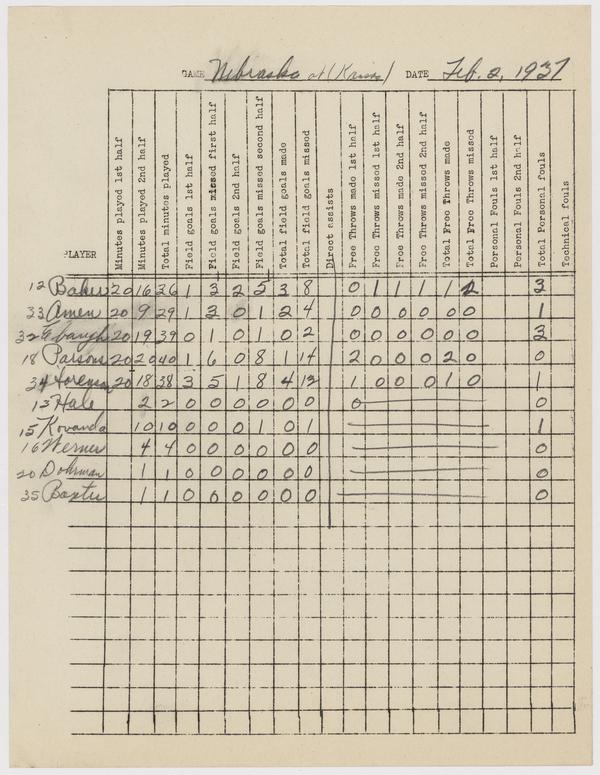 GAME Nebraska at (Kansas) DATE Feb. 2, 1937
PLAYER Minutes played 1st half Minutes played 2nd half Total minutes played Field goals 1st half Field goals missed first half Field goals 2nd half Field goals missed second half Total field goals made Total field goals missed Direct assists Free Throws made 1st half Free Throws missed 1st half Free Throws made 2nd half Free Throws missed 2nd half Total Free Throws made Total Free Throws missed Personal Fouls 1st half Personal Fouls 2nd half Total Personal fouls Technical fouls
12 Baker 20 16 36 1 3 2 5 3 8 0 1 1 1 1 2 3
33 Amen 20 9 29 1 3 0 1 2 4 0 0 0 0 0 0 1
32 Ebaugh 20 19 39 0 1 0 1 0 2 0 0 0 0 0 0 3
18 Parsons 20 20 40 1 6 0 8 1 14 2 0 0 0 2 0 0
34 Sorensen 20 18 38 3 5 1 8 4 13 1 0 0 0 1 0 1
13 Hale 2 2 0 0 0 0 0 0 0 0
15 Kovanda 10 10 0 0 0 1 0 1 1
16 Werner 4 4 0 0 0 0 0 0 0
20 Dohrman 1 1 0 0 0 0 0 0 0
35 Baxter 1 1 0 0 0 0 0 0 0